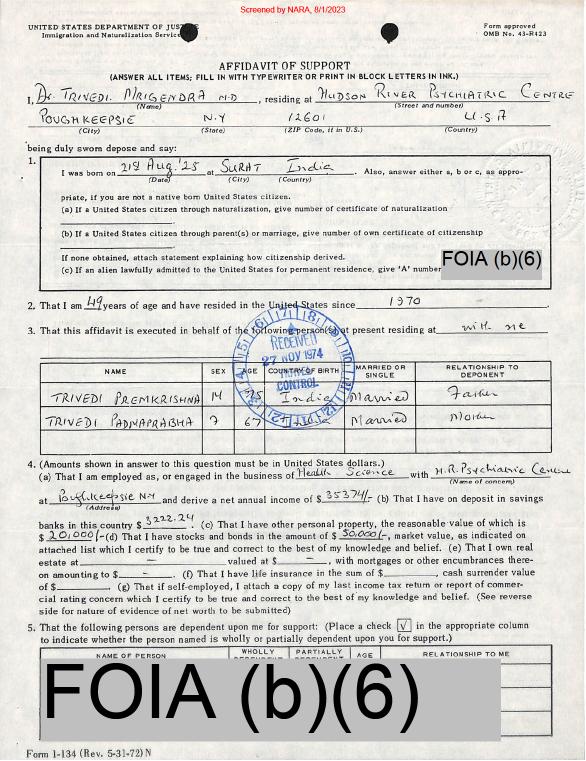 Screened by NARA, 8/1/2023
UNITED STATES DEPARTMENT OF JUSTICE
Immigration and Naturalization Service
Form approved
OMB No. 43-R423
AFFIDAVIT OF SUPPORT
(ANSWER ALL ITEMS; FILL IN WITH TYPEWRITER OR PRINT IN BLOCK LETTERS IN INK.)
I, Dr. TRIVEDI. MRIGENDRA M.D, residing at HUDSON RIVER PSYCHIATRIC CENTRE
(Name) (Street and number)
POUGHKEEPSIE N.Y 12601 U.S.A
(City) (State) (ZIP Code, if in U.S.) (Country)
being duly sworn depose and say:
1.
I was born on 21st Aug. '25 at SURAT India. Also, answer either a, b or c, as appro-
(Date) (City) (Country)
priate, if you are not a native born United States citizen.
(a) If a United States citizen through naturalization, give number of certificate of naturalization
(b) If a United States citizen through parent(s) or marriage, give number of own certificate of citizenship
If none obtained, attach statement explaining how citizenship derived.
(c) If an alien lawfully admitted to the United States for permanent residence, give 'A' number
FOIA (b)(6)
2. That I am 49 years of age and have resided in the United States since 1970
3. That this affidavit is executed in behalf of the following person(s) at present residing at with me
RECEIVED
27 NOV 1974
TRAVEL
CONTROL
NAME SEX AGE COUNTRY OF BIRTH MARRIED OR SINGLE RELATIONSHIP TO DEPONENT
TRIVEDI PREMKRISHNA M 75 India Married Father
TRIVEDI PADMAPRABHA F 67 India Married Mother
4. (Amounts shown in answer to this question must be in United States dollars.)
(a) That I am employed as, or engaged in the business of Health Science with H.R. Psychiatric Centre
(Name of concern)
at Poughkeepsie N.Y and derive a net annual income of $ 35374/- (b) That I have on deposit in savings
(Address)
banks in this country $ 3222.24. (c) That I have other personal property, the reasonable value of which is
$ 20,000/- (d) That I have stocks and bonds in the amount of $ 50,000/-, market value, as indicated on
attached list which I certify to be true and correct to the best of my knowledge and belief. (e) That I own real
estate at — valued at $ —, with mortgages or other encumbrances there-
on amounting to $ . (f) That I have life insurance in the sum of $ , cash surrender value
of $ . (g) That if self-employed, I attach a copy of my last income tax return or report of commer-
cial rating concern which I certify to be true and correct to the best of my knowledge and belief. (See reverse
side for nature of evidence of net worth to be submitted)
5. That the following persons are dependent upon me for support: (Place a check √ in the appropriate column
to indicate whether the person named is wholly or partially dependent upon you for support.)
NAME OF PERSON WHOLLY PARTIALLY AGE RELATIONSHIP TO ME
FOIA (b)(6)
Form I-134 (Rev. 5-31-72) N